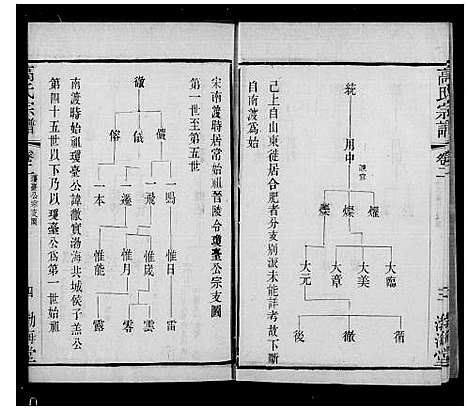 高氏宗譜
卷二
二
渤海堂
統
用中
燿
燦
燦
大臨
大美
大章
大元
衢
徹
後
己上自山東徙居合肥者分支別派未能詳考故下斷
自南渡為始
宋南渡時居常始祖晉陵令瓊臺公宗支圖
第一世至第五世
徹
儼
儀
俗
一鶚
一飛
一邊
一本
惟日
惟歲
惟月
惟能
雷
雲
零
露
南渡時始祖瓊臺公諱徹實渤海共城侯子羔公
第四十五世以下乃以瓊臺公為第一世始祖
高氏宗譜
瓊臺公宗支圖
四
渤海堂